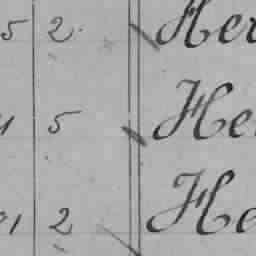 5 2. Her
5 He
1 2 He